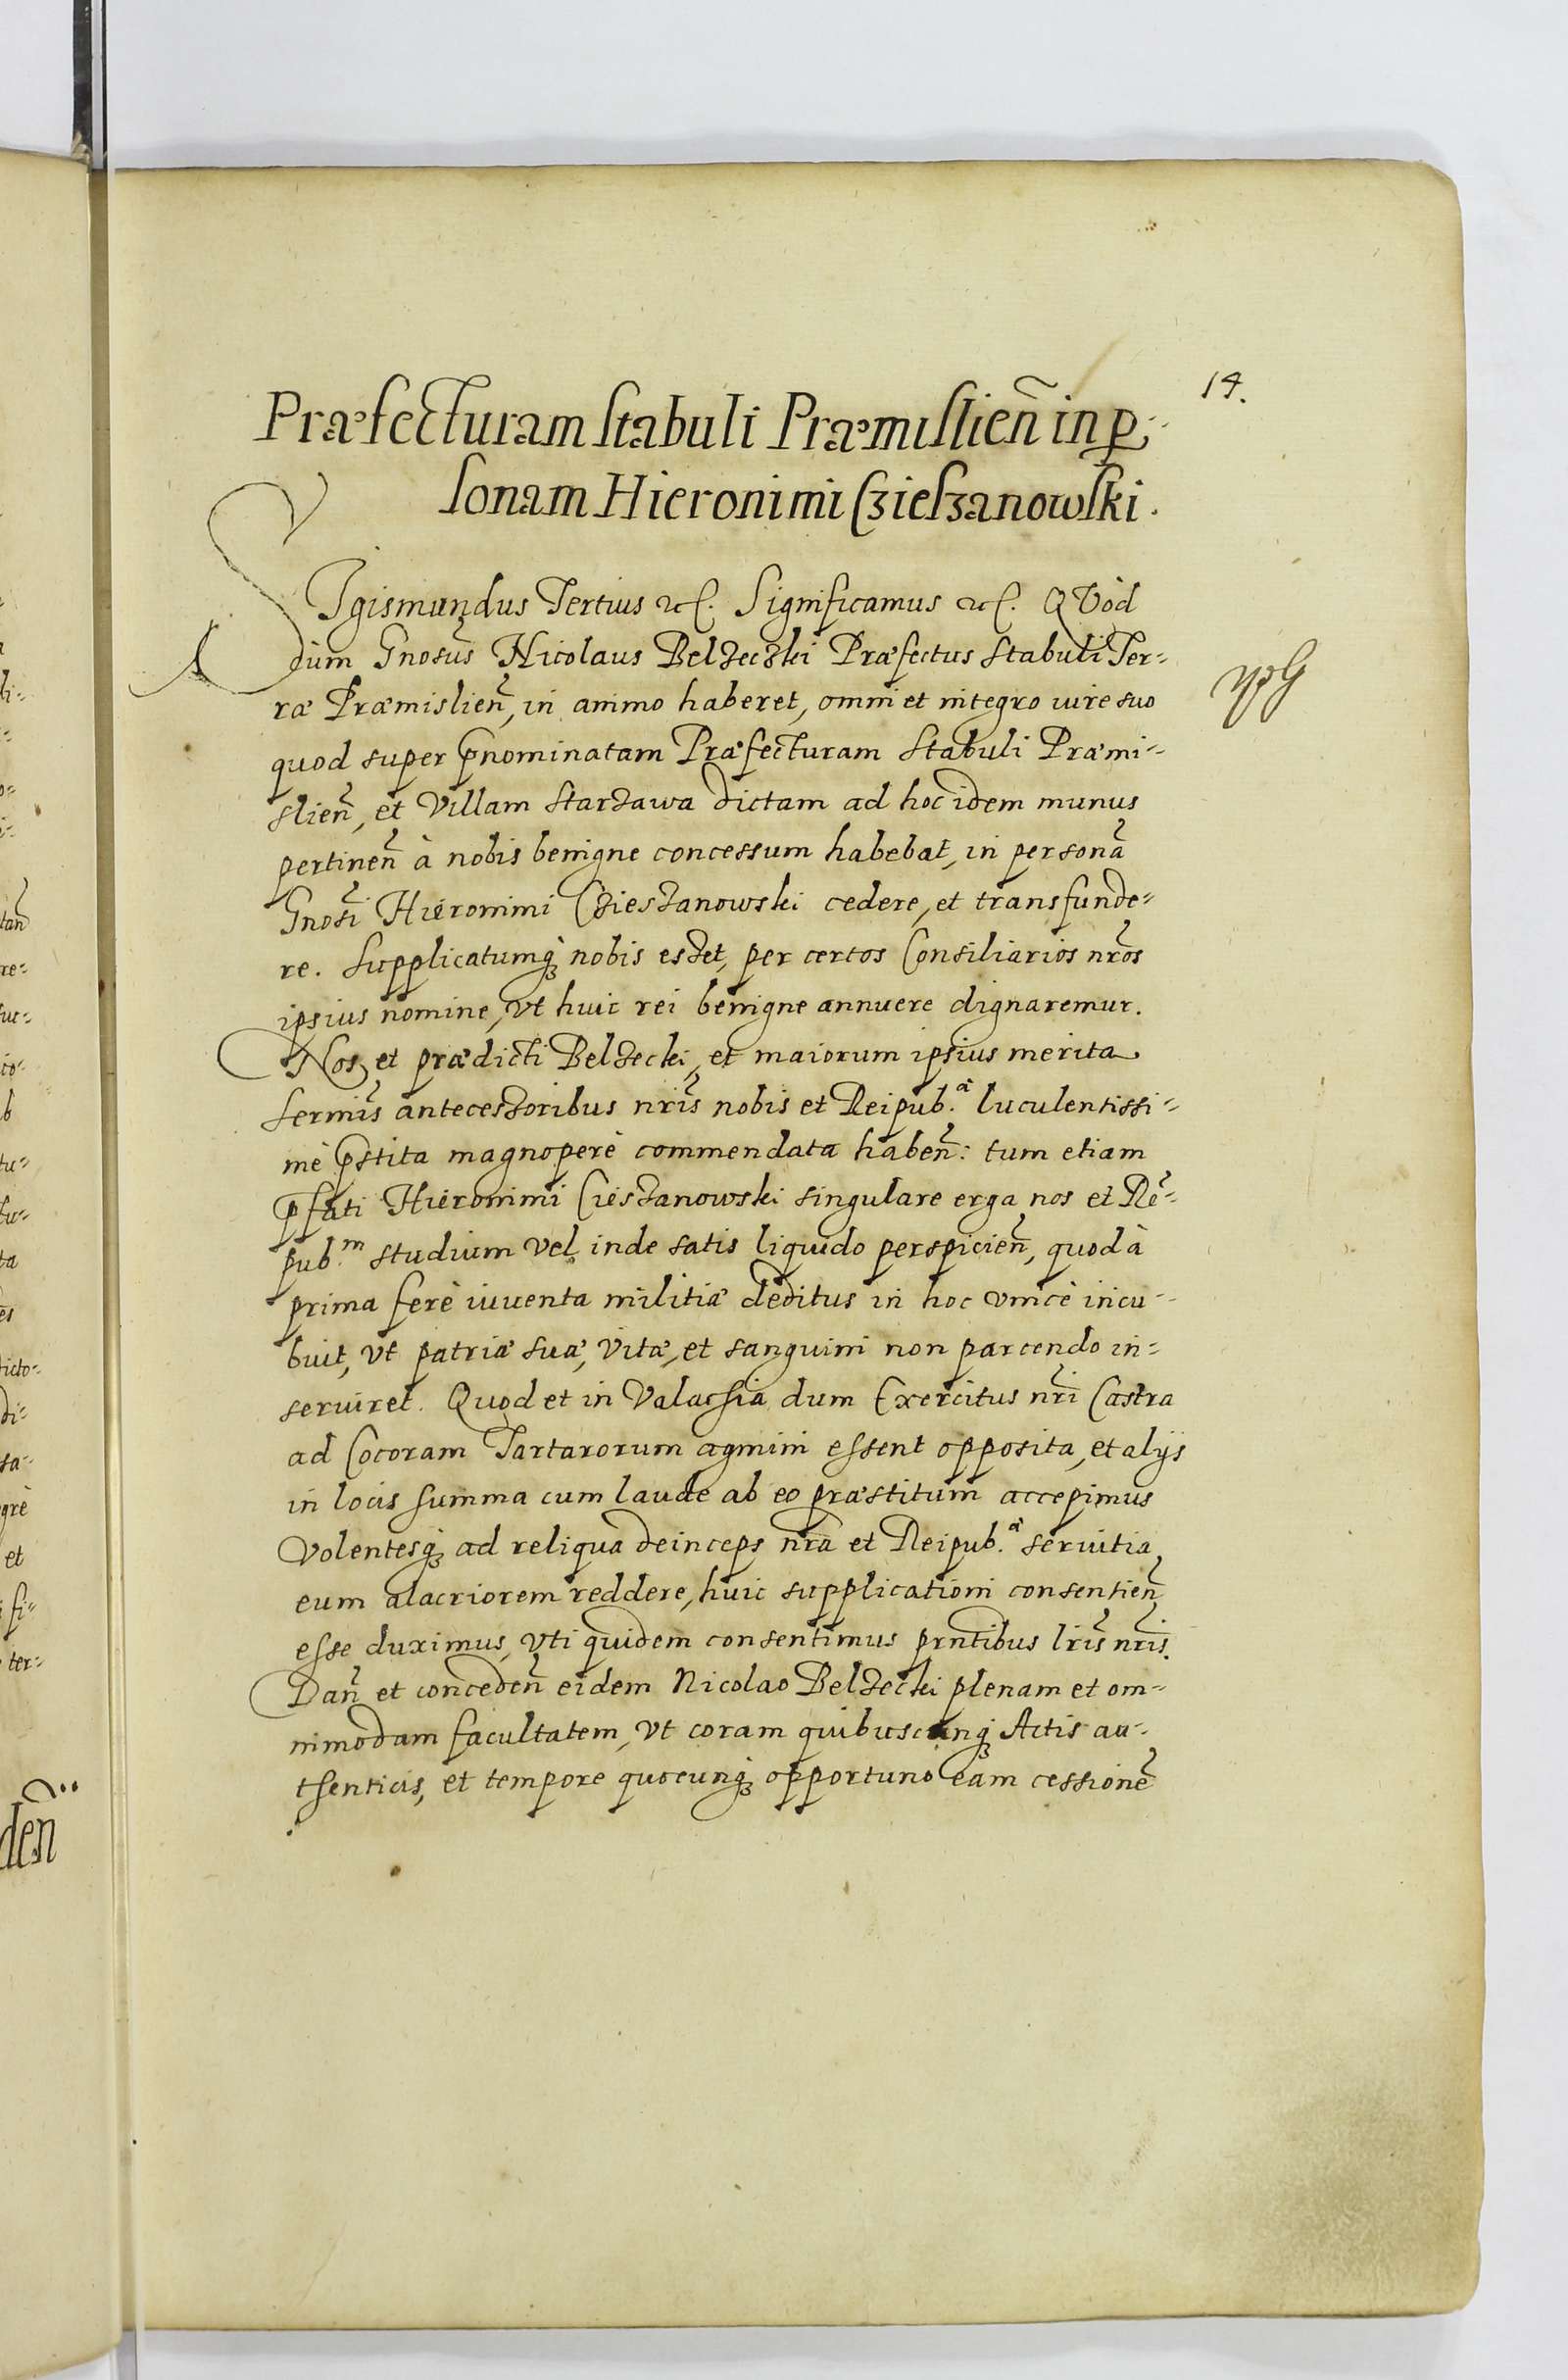 14.
Præfecturam stabuli Præmislien̄ in p̱-
sonam Hieronimi Czieszanowski.
SIgismundus Tertius etc. Significamus etc. QVòd
dùm Gnosus̃ Nicolaus Belzeczki Præfectus stabuli Ter-
ræ Præmislien̄, in animo haberet, omni et integro iure suo
quod super p̄nominatam Præfecturam stabuli Præmi-
slien̄, et Villam Starzawa dictam ad hoc idem munus
pertinen̄ à nobis benigne concessum habebat, in personã
Gnosi̇̃ Hieronimi Czieszanowski cedere, et transfunde-
re. Supplicatumq; nobis esset, per certos Consiliarios nr̃os
ipsius nomine, vt huic rei benigne annuere dignaremur.
Nos et prædicti Belzecki, et maiorum ipsius merita
sermis̃ antecessoribus nr̃is nobis et Reipub.ᵃ luculentissi-
mè p̄stita magnoperè commendata haben̄: tum etiam
p̄fati Hieronimi Cieszanowski singulare erga nos et Rẽ-
pub.ᵐ studium vel inde satis liquido perspicien̄, quod à
prima ferè iuuenta militiæ deditus in hoc vnicè incu-
buit, vt patriæ suæ, vitæ, et sanguini non parcendo in-
seruiret. Quod et in Valachia dum Exercitus nr̃i Castra
ad Cocoram Tartarorum agmini essent opposita, et alijs
in locis summa cum laude ab eo præstitum accepimus
Volentesq; ad reliqua deinceps nr̃a et Reipub.ᵃ seruitia
eum alacriorem reddere, huic supplicationi consentien̄
esse duximus, vti quidem consentimus prñtibus lr̃is nr̃is.
Dan̄ et conceden̄ eidem Nicolao Belzecki plenam et om-
nimodam facultatem, vt coram quibuscunq; Actis au-
thenticis, et tempore quocunq; opportuno eam cessionẽ